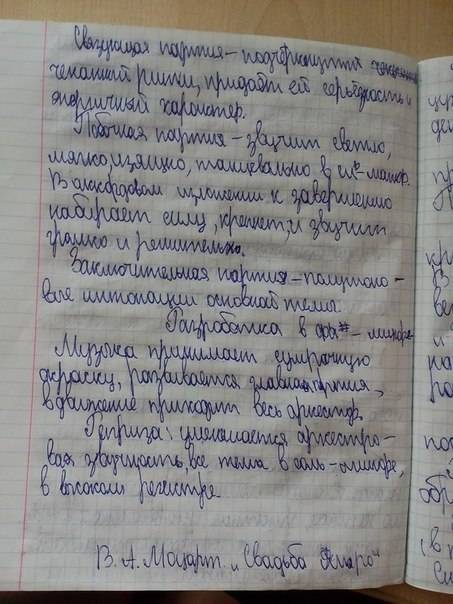 Связующая партия – подчёркнутый
чеканный ритм, придаёт ей серьёзность и
энергичный характер.
Побочная партия – звучит светло,
мягко, изящно, танцевально в сиь-мажор.
В аккордовом изложении к завершению
набирает силу, крепнет, и звучит
громко и решительно.
Заключительная партия – полутоно-
вые интонации основной темы.
Разработка в фа#-миноре
Музыка принимает сумрачную
окраску, развивается главная партия,
в движение приходит весь оркестр.
Реприза: уменьшается оркестро-
вая звучность, все темы в соль-миноре,
в высоком регистре
В. А. Моцарт „Свадьба Фигаро"